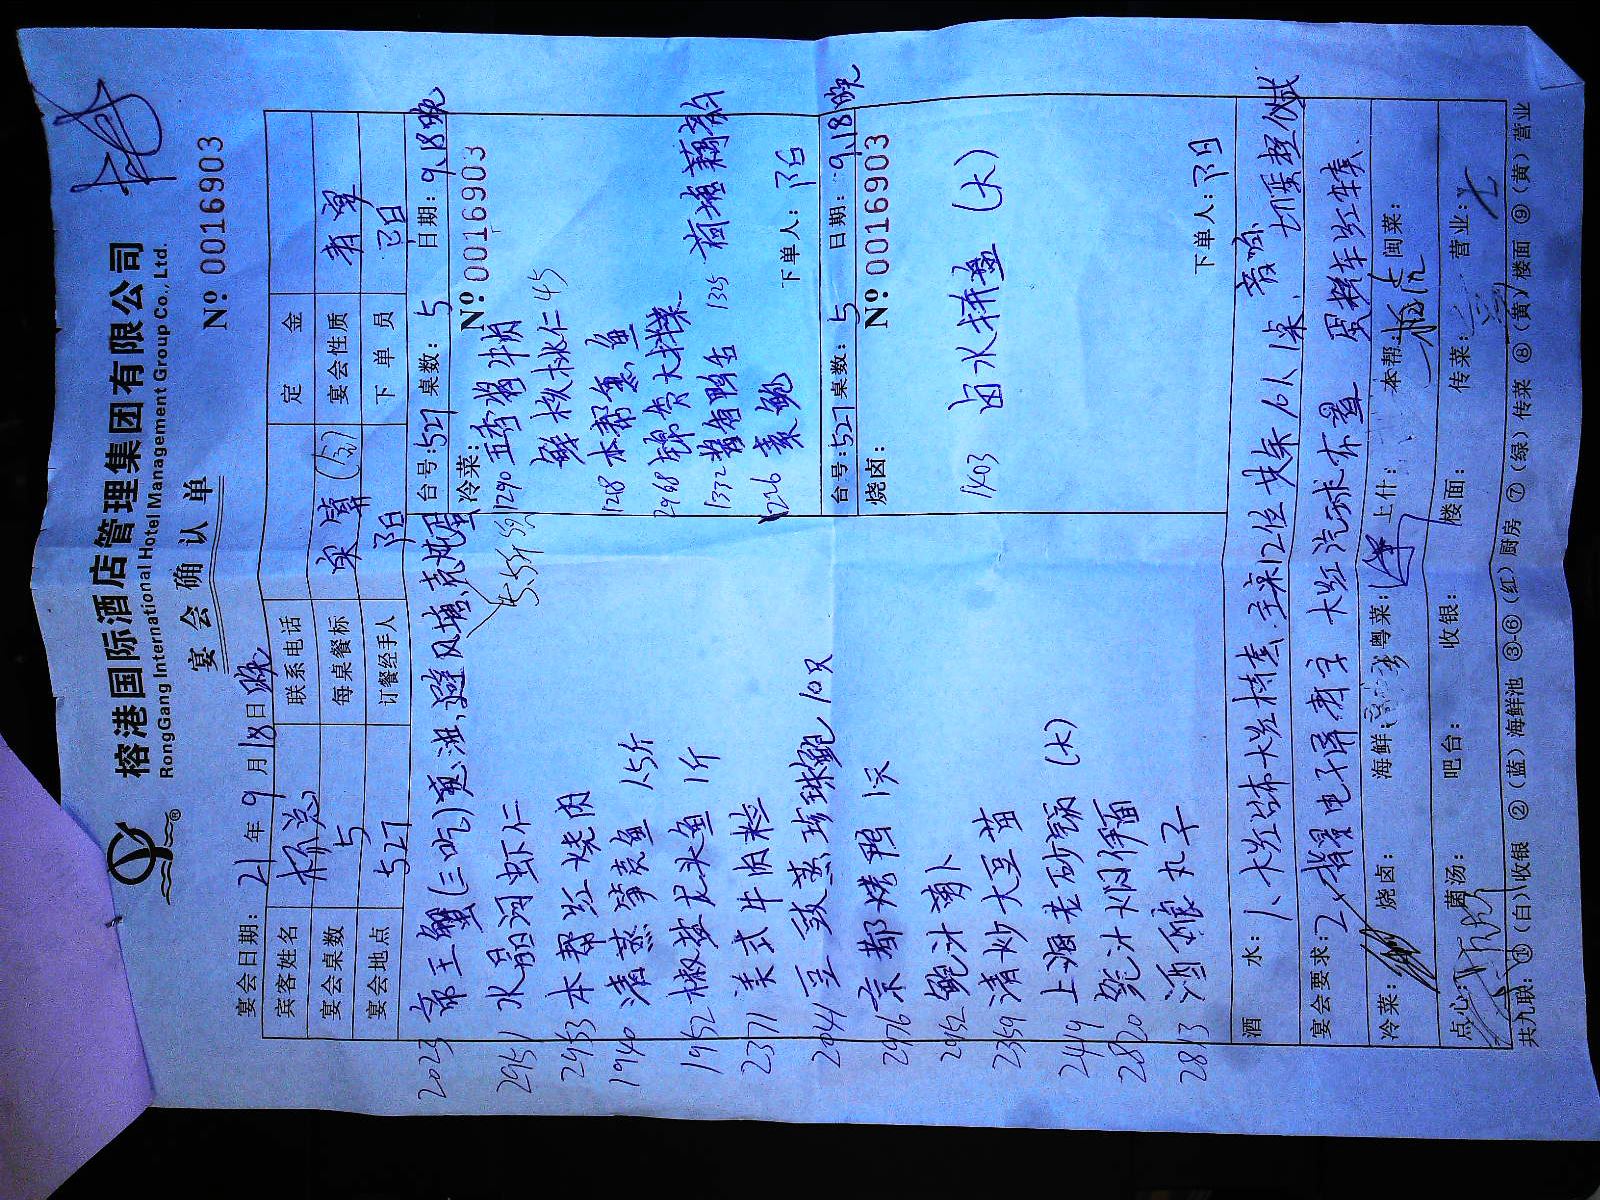 榕港国际酒店管理集团有限公司
RongGang International Hotel Management Group Co., Ltd.
宴会确认单
Nº 0016903
宴会日期：21年9月18日晚
宾客姓名 杨总 联系电话 定金
宴会桌数 5 每桌餐标 宴会性质 寿宴
宴会地点 527 订餐经手人 阳 下单员 阳
2023 帝王蟹(三吃)
2951 水晶河虾仁
2953 本帮红烧肉
1940 清蒸笋壳鱼 1.5斤
1952 椒盐尼头鱼 1斤
2371 美式牛肉粒
2041 豆豉蒸珍珠鲍 10只
2976 京都烤鸭 1只
2952 鲍汁萝卜
2359 清炒大豆苗
2419 上海老砂锅 (大)
2820 鲍汁焖伊面
2813 酒酿丸子
台号：527 桌数：5 日期：9.18晚
冷菜： Nº 0016903
1290 五香酱牛肉
鲜核桃仁 45
1218 本帮熏鱼
2968 大拌菜
1332 酱香鸭舌 1325
1226 素鲍
下单人：阳
台号：527 桌数：5 日期：9.18晚
烧卤： Nº 0016903
1403 卤水拼盘 (大)
下单人：阳
酒水：1、大红台布大红椅套 主桌12位 其余10人1桌、音响
宴会要求：2、背景电子屏寿字 大红汽球布置
冷菜： 烧卤： 海鲜： 粤菜： 上什： 本帮： 闽菜：
点心： 蒸汤： 吧台： 收银： 楼面： 传菜： 营业：
共九联： ①(白)收银 ②(蓝)海鲜池 ③-⑥(红)厨房 ⑦(绿)传菜 ⑧(黄)楼面 ⑨(黄)营业